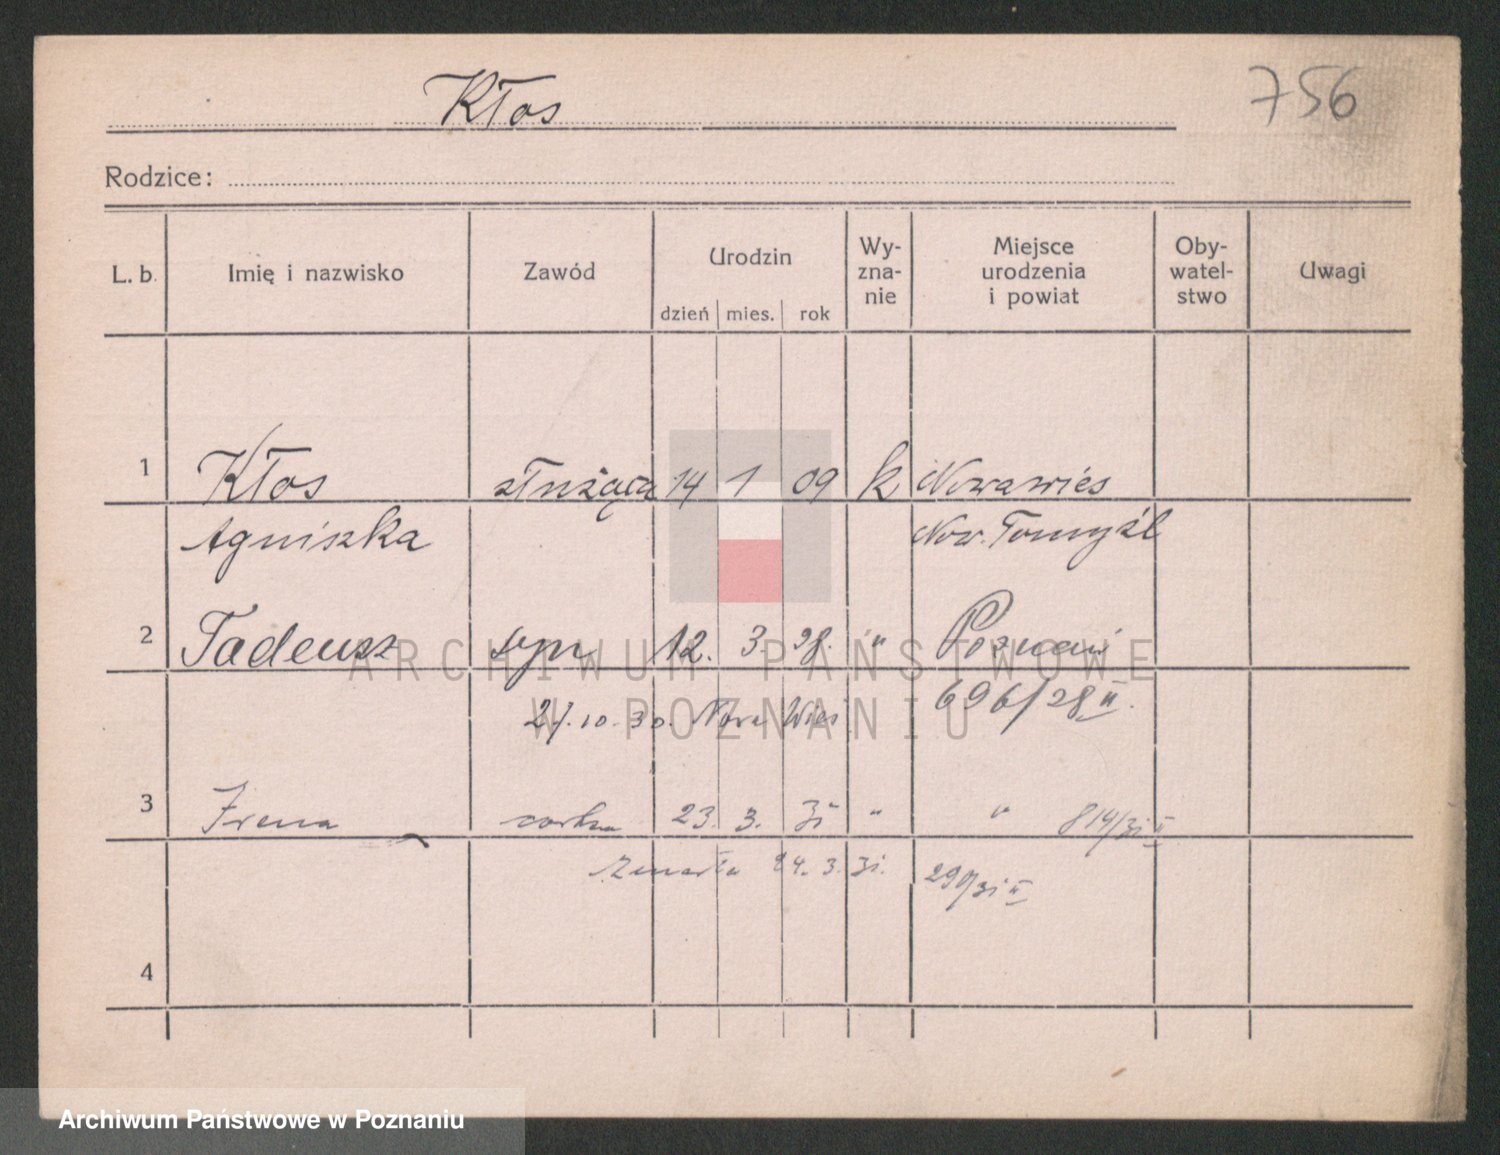 Kłos
756
Rodzice:
L. b. Imię i nazwisko Zawód Urodzin dzień mies. rok Wy-zna-nie Miejsce urodzenia i powiat Oby-watel-stwo Uwagi
1 Kłos służąca 14 1 09 k Nowawieś
Agniszka Now. Tomyśl
2 Tadeusz syn 12. 3. 28. " Poznań
696/28 II.
27.10.30. Nowa Wieś
3 Irena córka 23. 3. 31 " " 814/31 II
zmarła 24. 3. 31. 290/31 II
4
ARCHIWUM PAŃSTWOWE
W POZNANIU
Archiwum Państwowe w Poznaniu